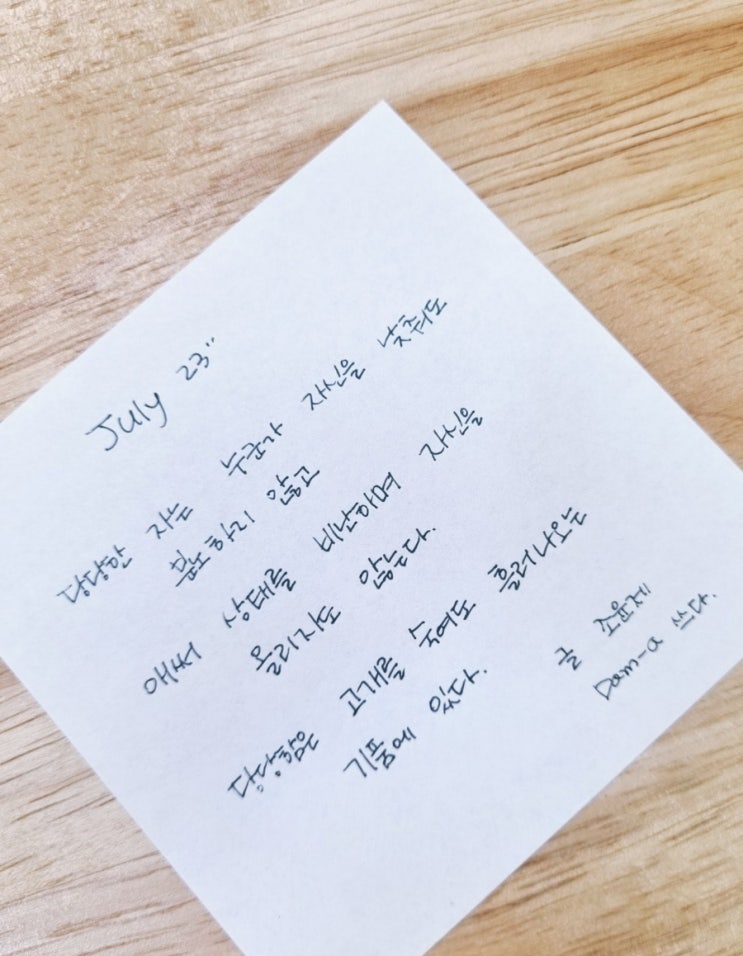 July 23"
당당한 자는 누군가 자신을 낮춰도
분노하지 않고
애써 상대를 비난하며 자신을
올리지도 않는다.
당당함은 고개를 숙여도 흘러나오는
기품에 있다.
글 소윤제
Dam-a 쓰다.